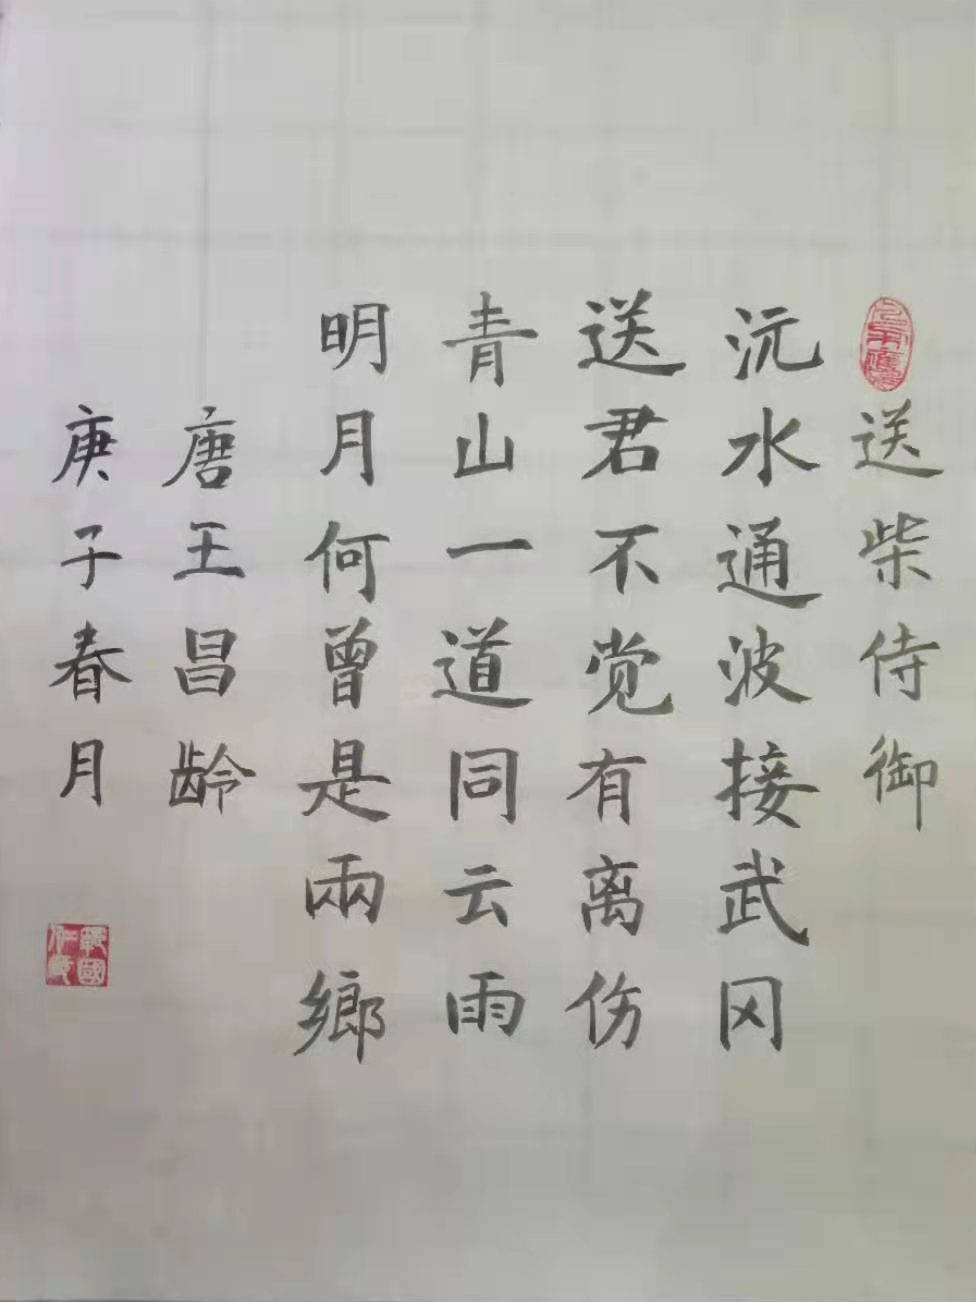 送柴侍御
沅水通波接武冈
送君不觉有离伤
青山一道同云雨
明月何曾是兩鄉
唐王昌龄
庚子春月